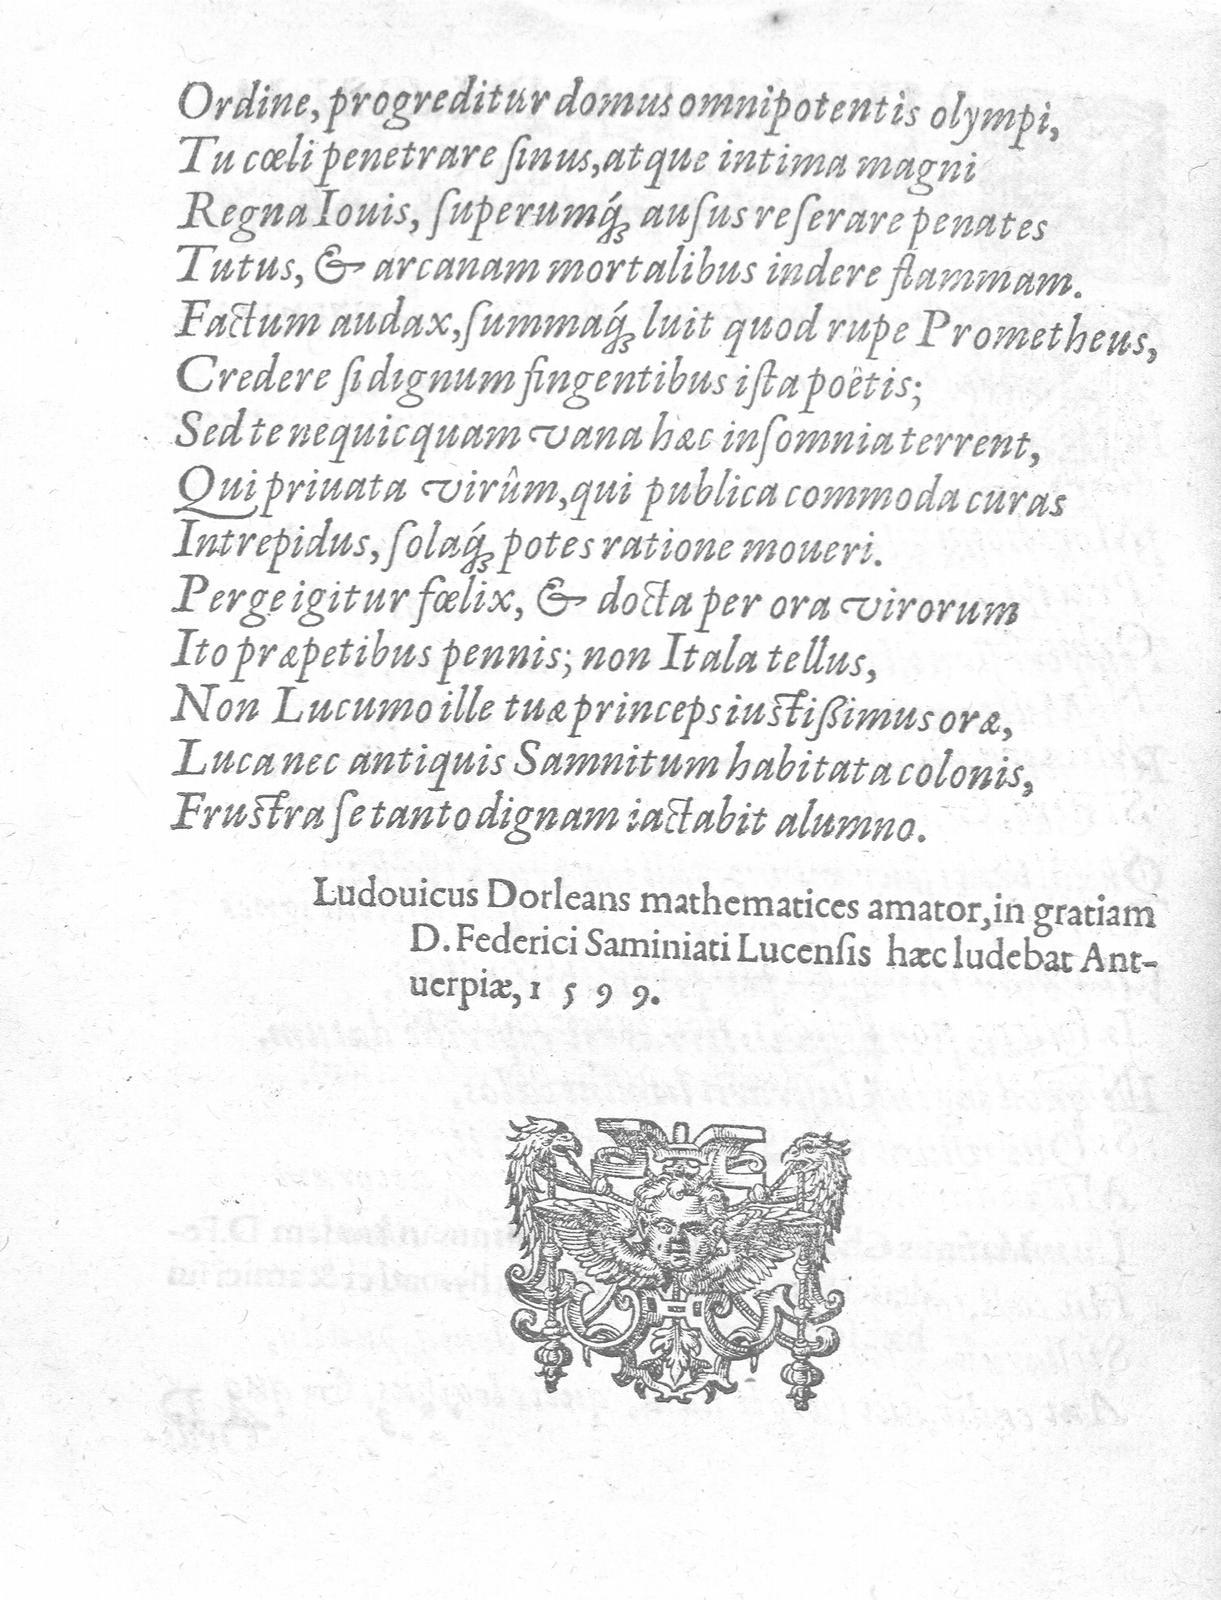 Ordine, progreditur domus omnipotentis olympi,
Tu cœli penetrare ſinus, atque intima magni
Regna Iouis, ſuperumq́ꝫ auſus reſerare penates
Tutus, & arcanam mortalibus indere flammam.
Factum audax, ſummaq́ꝫ luit quod rupe Prometheus,
Credere ſi dignum fingentibus iſta poëtis;
Sed te nequicquam vana hæc inſomnia terrent,
Qui priuata virûm, qui publica commoda curas
Intrepidus, ſolaq́ꝫ potes ratione moueri.
Perge igitur fœlix, & docta per ora virorum
Ito præpetibus pennis; non Itala tellus,
Non Lucumo ille tuæ princeps iustißimus oræ,
Luca nec antiquis Samnitum habitata colonis,
Frustra ſe tanto dignam iactabit alumno.
Ludouicus Dorleans mathematices amator, in gratiam
D. Federici Saminiati Lucenſis hæc ludebat Ant-
uerpiæ, 1 5 9 9.